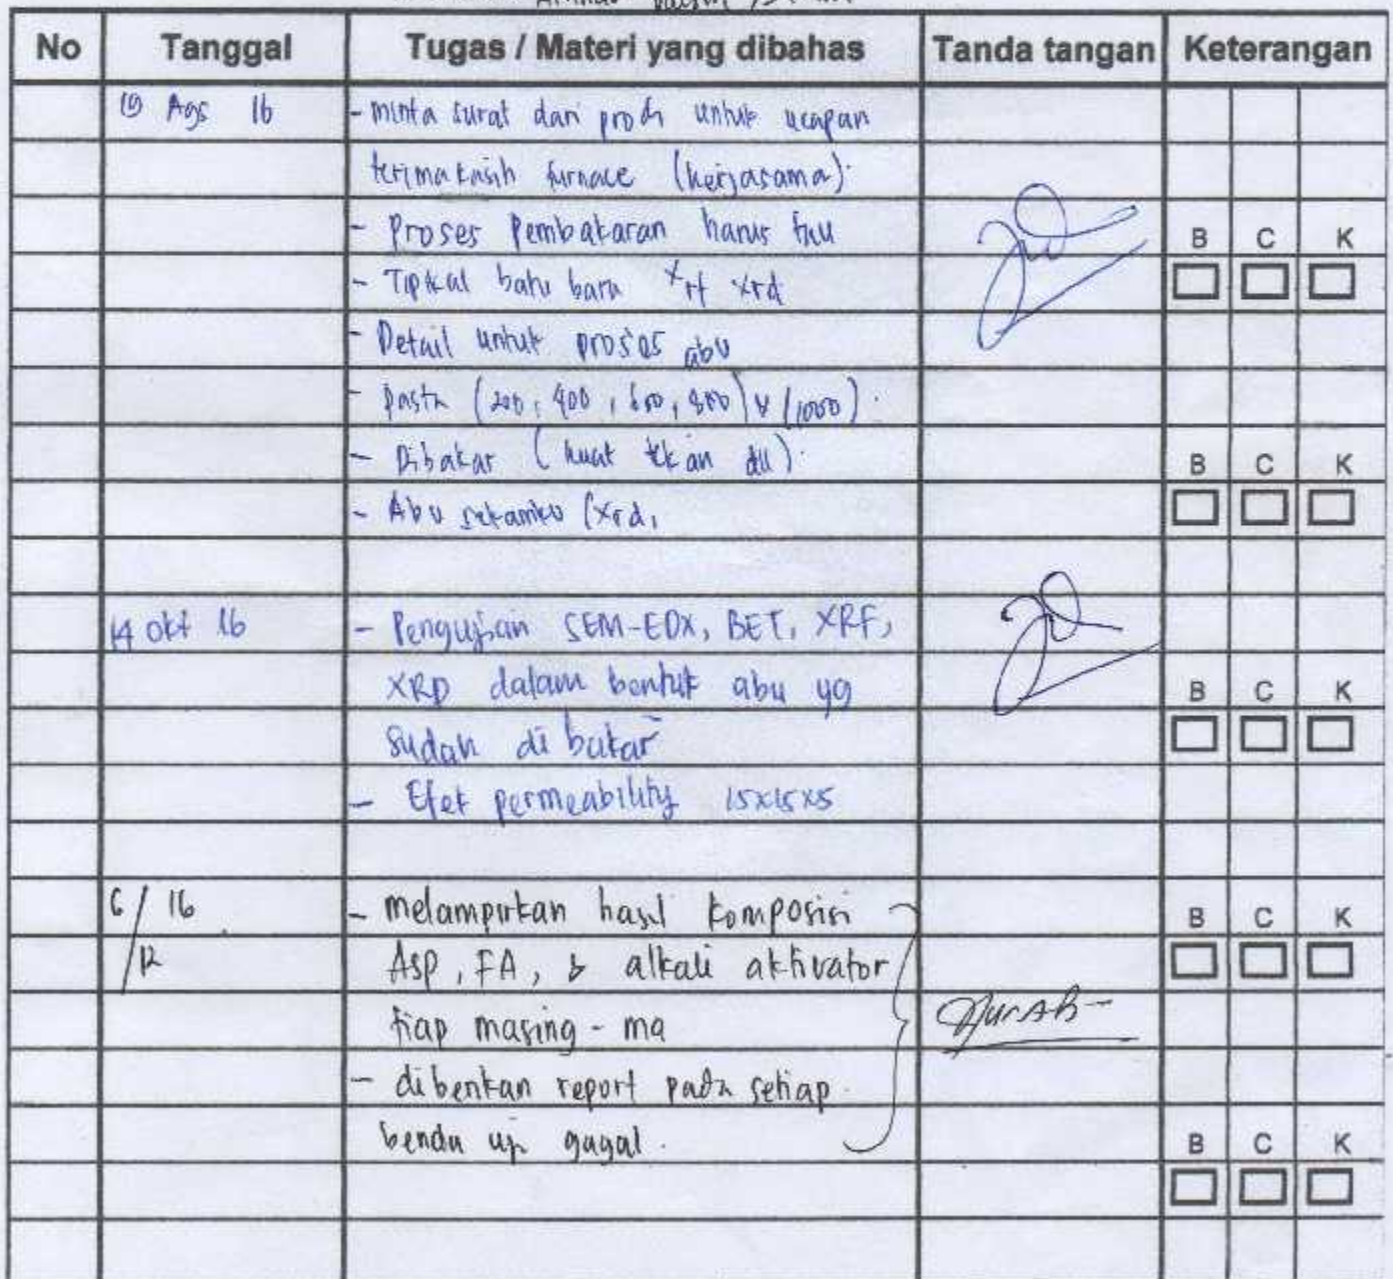 No Tanggal Tugas / Materi yang dibahas Tanda tangan Keterangan
19 Ags 16 - minta surat dari prodi untuk ucapan
terimakasih furnace (kerjasama).
- Proses Pembakaran harus
B C K
- Tipikal batu bara xrf xrd
- Detail untuk proses abu
- pasta (200, 400, 600, 800) (1000).
- Dibakar (kuat tekan dll).
B C K
- Abu (xrd,
14 Okt 16 - Pengujian SEM-EDX, BET, XRF,
XRD dalam bentuk abu yg
B C K
sudah di bakar
- Efek permeability 15x15x5
6/16 - melampirkan hasil komposisi
B C K
/12 Asp, FA, & alkali aktivator
tiap masing-ma
- diberikan report pada setiap
benda uji gagal.
B C K